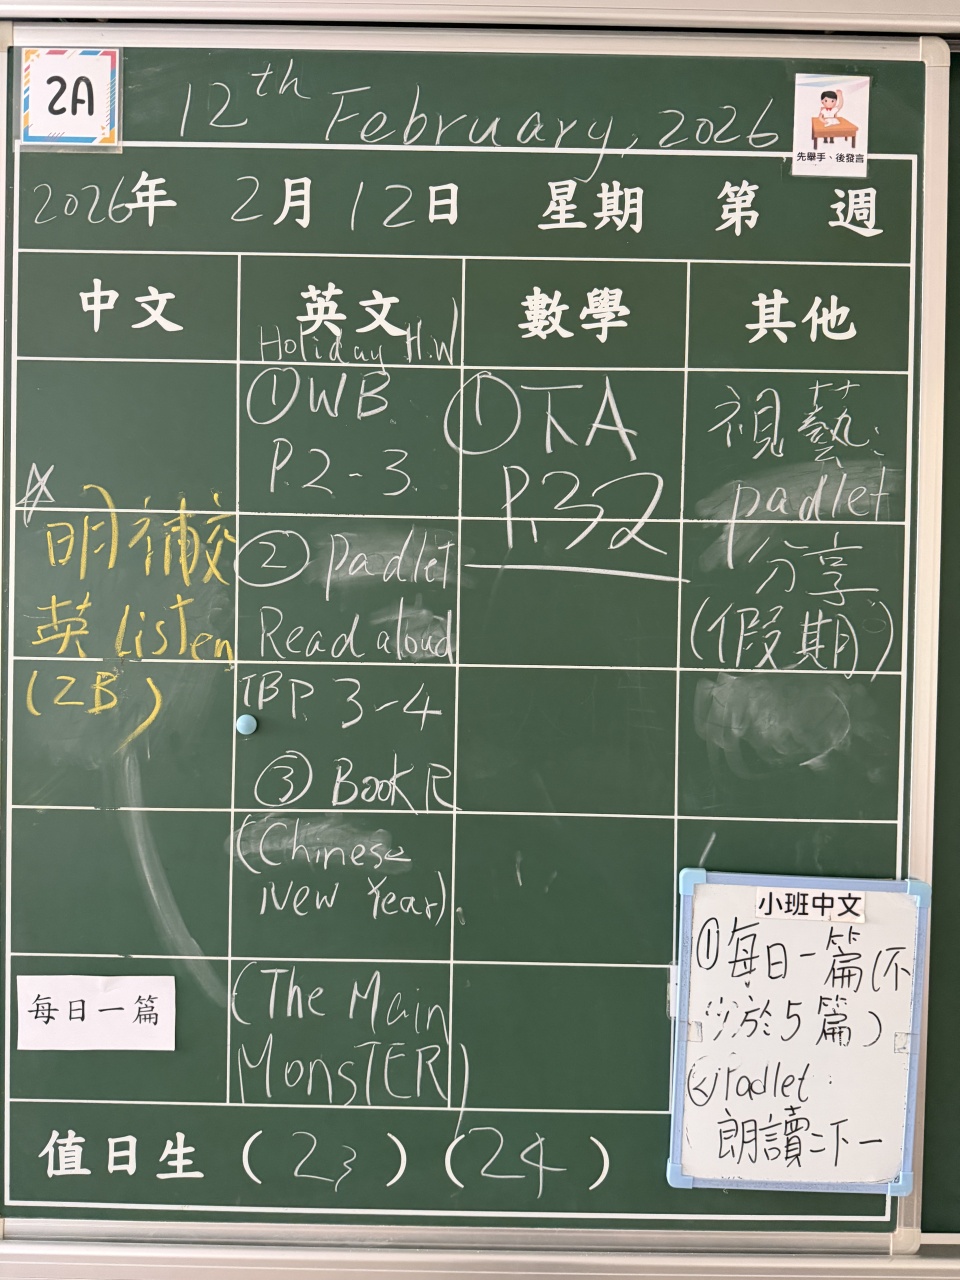 2A
12th February, 2026
先舉手、後發言
2026年 2月12日 星期 第 週
中文 英文 數學 其他
Holiday H.W
①WB
P.2-3
②padlet
Read aloud
TBP. 3-4
③ Book R
(Chinese
New Year)
(The Main
MonsTER)
①下A
P.32
視藝:
padlet
分享
(假期)
明補交
英 listen
(2B)
每日一篇
小班中文
①每日一篇(不
少於5篇)
②Padlet:
朗讀二下一
值日生 (23) (24)